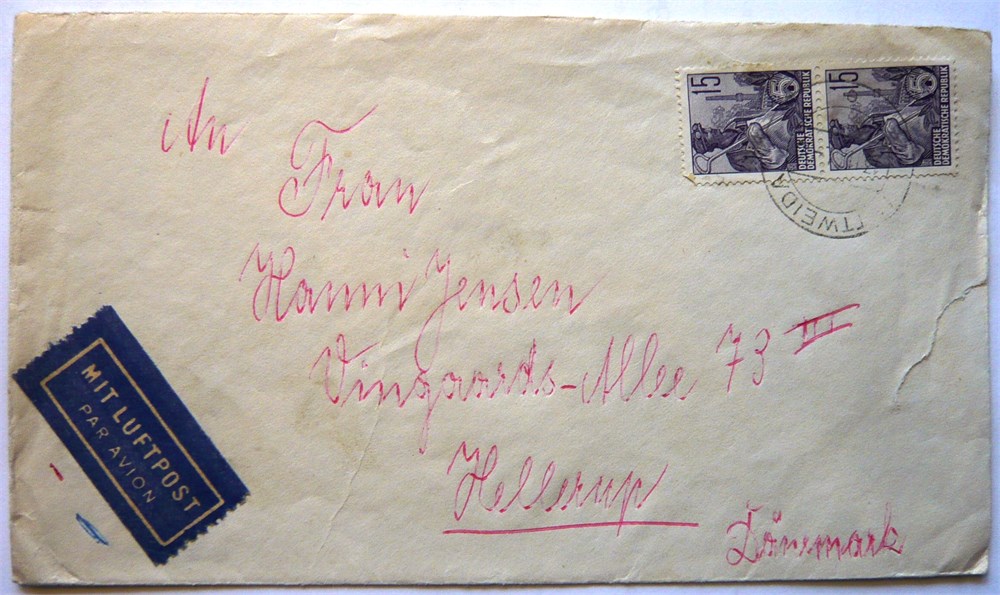 An
Frau
Hanni Jensen
Vingaards-Allee 73 III
Hellerup
Dänemark
MIT LUFTPOST
PAR AVION
15
DEUTSCHE
DEMOKRATISCHE REPUBLIK
15
DEUTSCHE
DEMOKRATISCHE REPUBLIK
TWEIDA